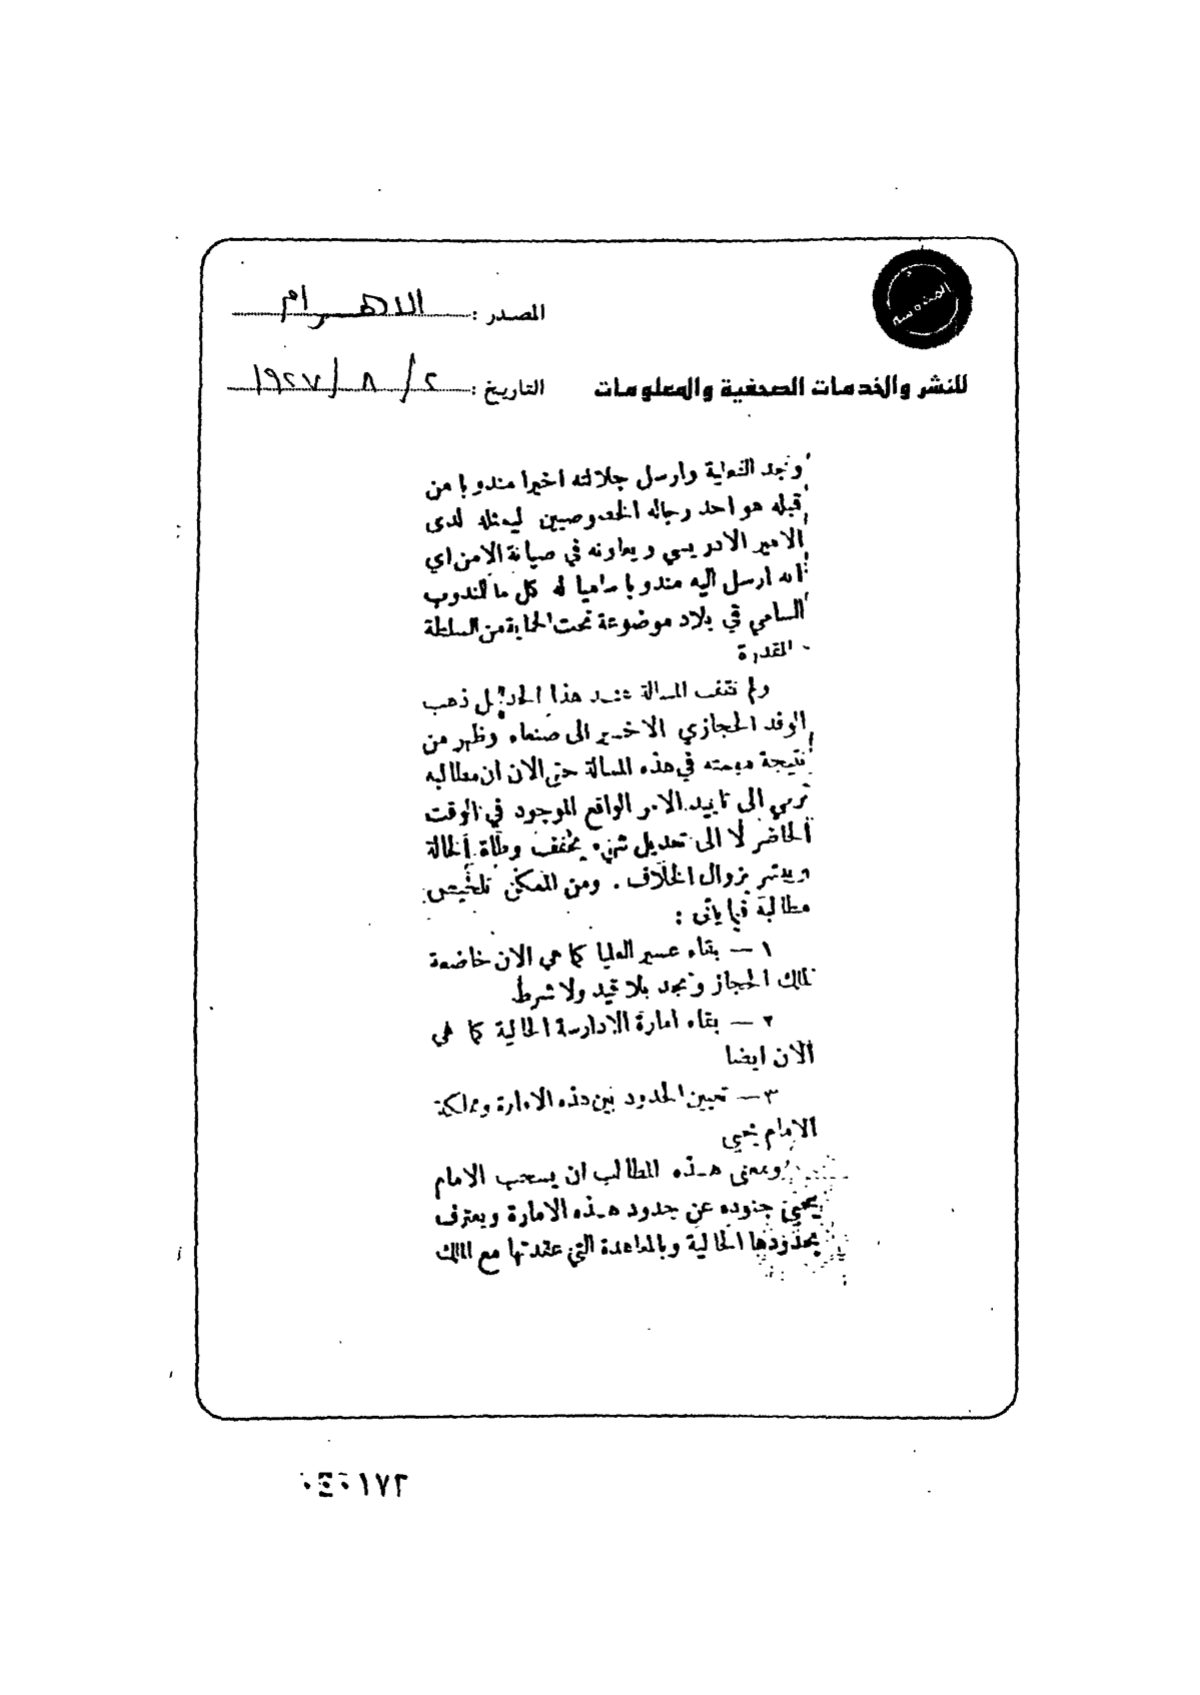 المصدر : الاهرام
التاريخ : ٢ / ٨ / ١٩٢٧
للنشر والخدمات الصحفية والمعلومات
ونجد النهاية وارسل جلالته اخيرا مندوبا من
قبله هو احد رجاله الخصوصيين ليمثله لدى
الامير الادريسي ويعاونه في صيانة الامن اي
انه ارسل اليه مندوبا ساميا له كل ما للمندوب
السامي في بلاد موضوعة تحت الحماية من السلطة
المقدرة
ولم تقف المسالة عند هذا الحد بل ذهب
الوفد الحجازي الاخير الى صنعاء وظهر من
نتيجة مهمته في هذه المسالة حتى الان ان مطالبه
ترمي الى تاييد الامر الواقع الموجود في الوقت
الحاضر لا الى تعديل شيء يخفف وطأة الحالة
ويبشر بزوال الخلاف . ومن الممكن تلخيص
مطالبه فيما يأتى :
١ — بقاء عسير العليا كما هي الان خاضعة
لملك الحجاز ونجد بلا قيد ولا شرط
٢ — بقاء امارة الادارسة الحالية كما هي
الآن ايضا
٣ — تعيين الحدود بين هذه الامارة ومملكة
الامام يحيى
ومعنى هذه المطالب ان يسحب الامام
يحيى جنوده عن حدود هذه الامارة ويعترف
بحدودها الحالية وبالمعاهدة التي عقدتها مع الملك
١٧٢